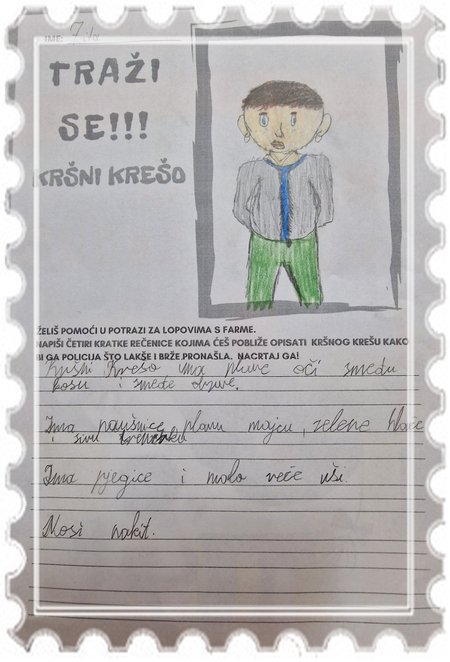 IME:
TRAŽI
SE!!!
KRŠNI KREŠO
ŽELIŠ POMOĆI U POTRAZI ZA LOPOVIMA S FARME.
NAPIŠI ČETIRI KRATKE REČENICE KOJIMA ĆEŠ POBLIŽE OPISATI KRŠNOG KREŠU KAKO
BI GA POLICIJA ŠTO LAKŠE I BRŽE PRONAŠLA. NACRTAJ GA!
Kršni Krešo ima plave oči smeđu
kosu i smeđe obrve.
Ima naušnice plavu majcu, zelene hlače
i sivu
Ima pjegice i malo veće uši.
Nosi nakit.